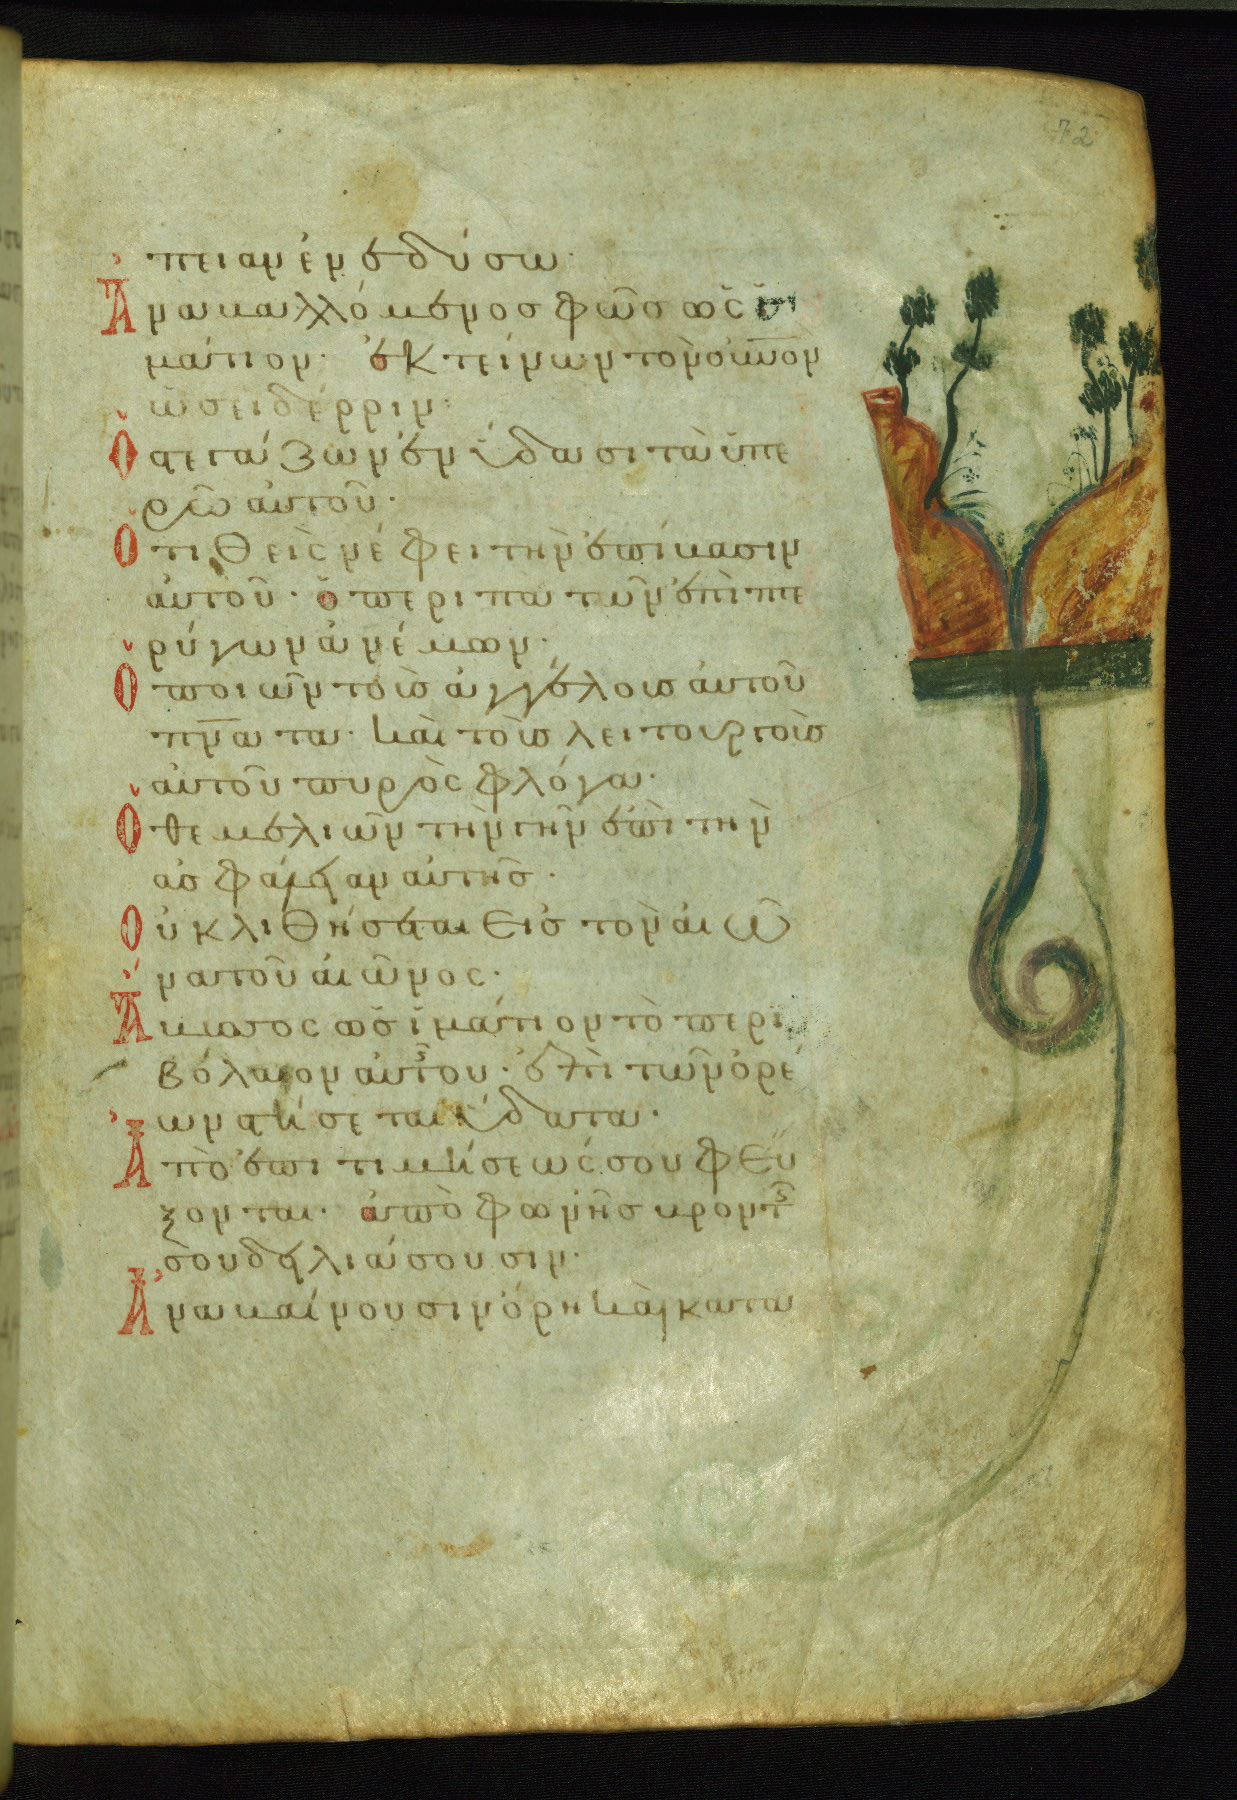 72
πειαν ἐνεδύσω·
Ἀναβαλλόμενος φῶς ὡς ἱ
μάτιον· ἐκτείνων τὸν οὐνον
ὡσεὶ δέρριν·
Ὁ στεγάζων ἐν ὕδασι τὰ ὑπε
ρῶα αὐτοῦ·
Ὁ τιθεὶς νέφει τὴν ἐπίβασιν
αὐτοῦ· ὁ περιπατῶν ἐπὶ πτε
ρύγων ἀνέμων·
Ὁ ποιῶν τοὺς ἀγγέλους αὐτοῦ
πνατα· καὶ τοὺς λειτουργοὺς
αὐτοῦ πυρὸς φλόγα·
Ὁ θεμελιῶν τὴν γῆν ἐπὶ τὴν
ἀσφάλειαν αὐτῆς·
Οὐ κλιθήσεται εἰς τὸν αἰῶ
να τοῦ αἰῶνος·
Ἄβυσσος ὡς ἱμάτιον τὸ περι
βόλαιον αὐτοῦ· ἐπὶ τῶν ὀρέ
ων στήσεται ὕδατα·
Ἀπὸ ἐπιτιμήσεώς σου φεύ
ξονται· ἀπὸ φωνῆς βροντῆς
σου δειλιάσουσιν·
Ἀναβαίνουσιν ὄρη καὶ κατα